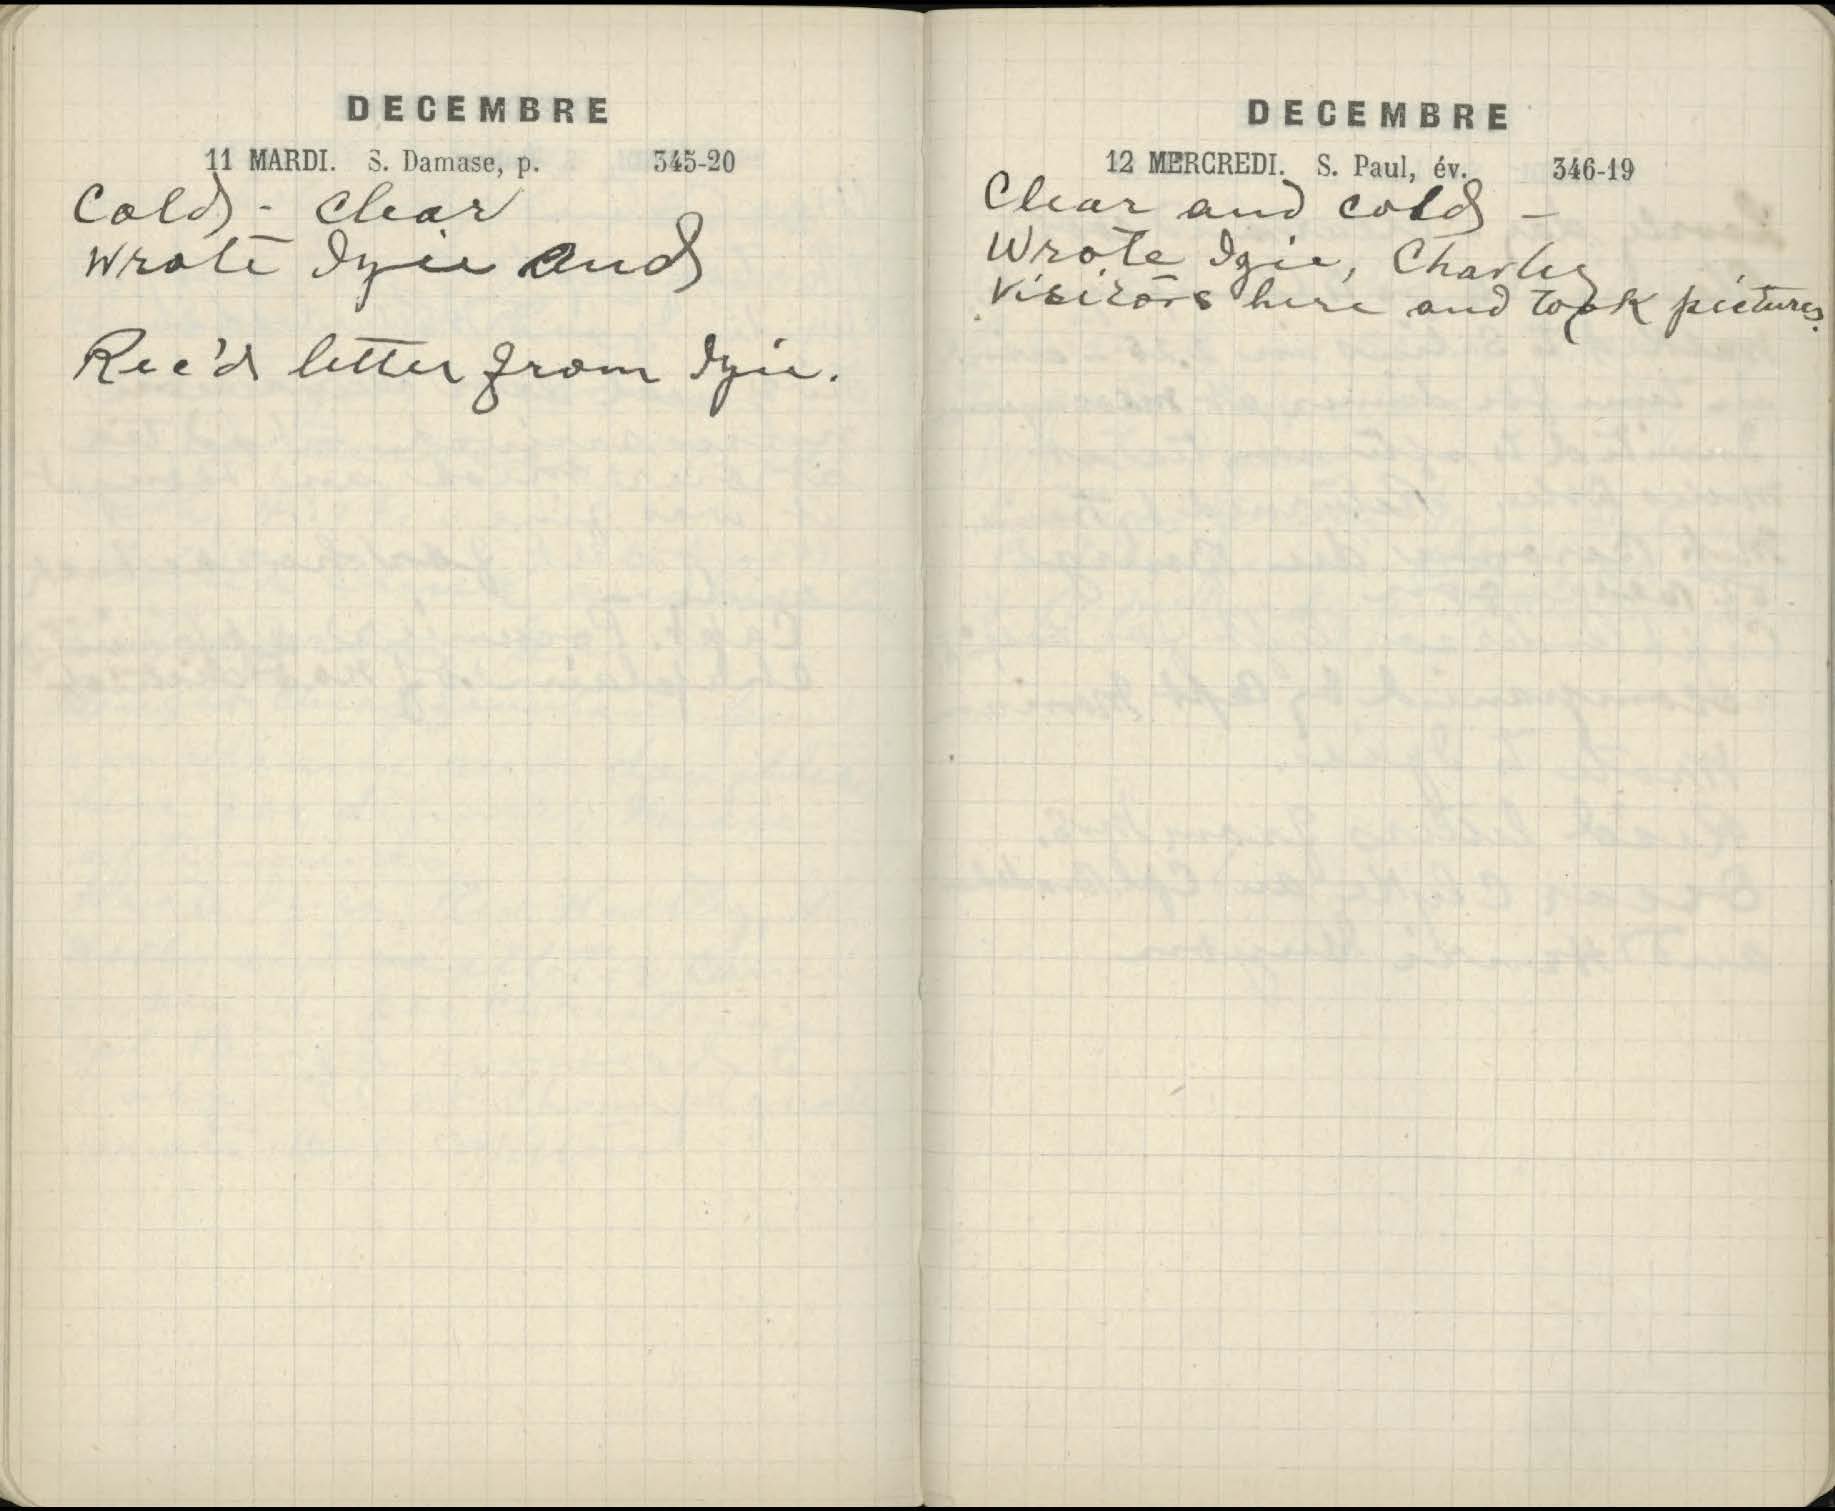 DECEMBRE
11 MARDI. S. Damase, p. 345-20
Cold - Clear
Wrote Izie and
Rec'd letter from Izie.
DECEMBRE
12 MERCREDI. S. Paul, év. 346-19
Clear and cold -
Wrote Izie, Charley
Visitors here and took pictures.